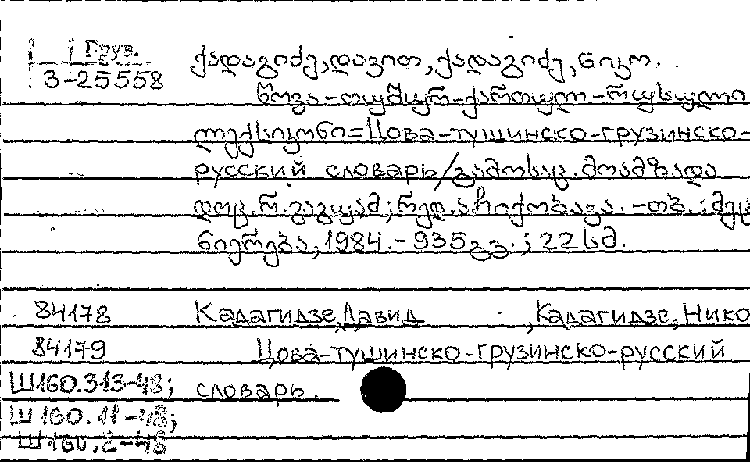 Груз.
3-25558
ქადაგიძე, დავით, ქადაგიძე, ნიკო.
წოვა-თუშურ-ქართულ-რუსული
ლექსიკონი=Цова-тушинско-грузинско-
русский словарь/გამოსაც. მოამზადა
დოც. რ. გაგუამ; რედ. არ. ჩიქობავა. -თბ.: მეც
ნიერება, 1984. - 935გვ. ; 22 სმ.
84178 Кадагидзе, Давид , Кадагидзе, Нико
84179 Цова-тушинско-грузинско-русский
Ш160.313-48; словарь.
Ш160.11-48;
Ш160.2-48